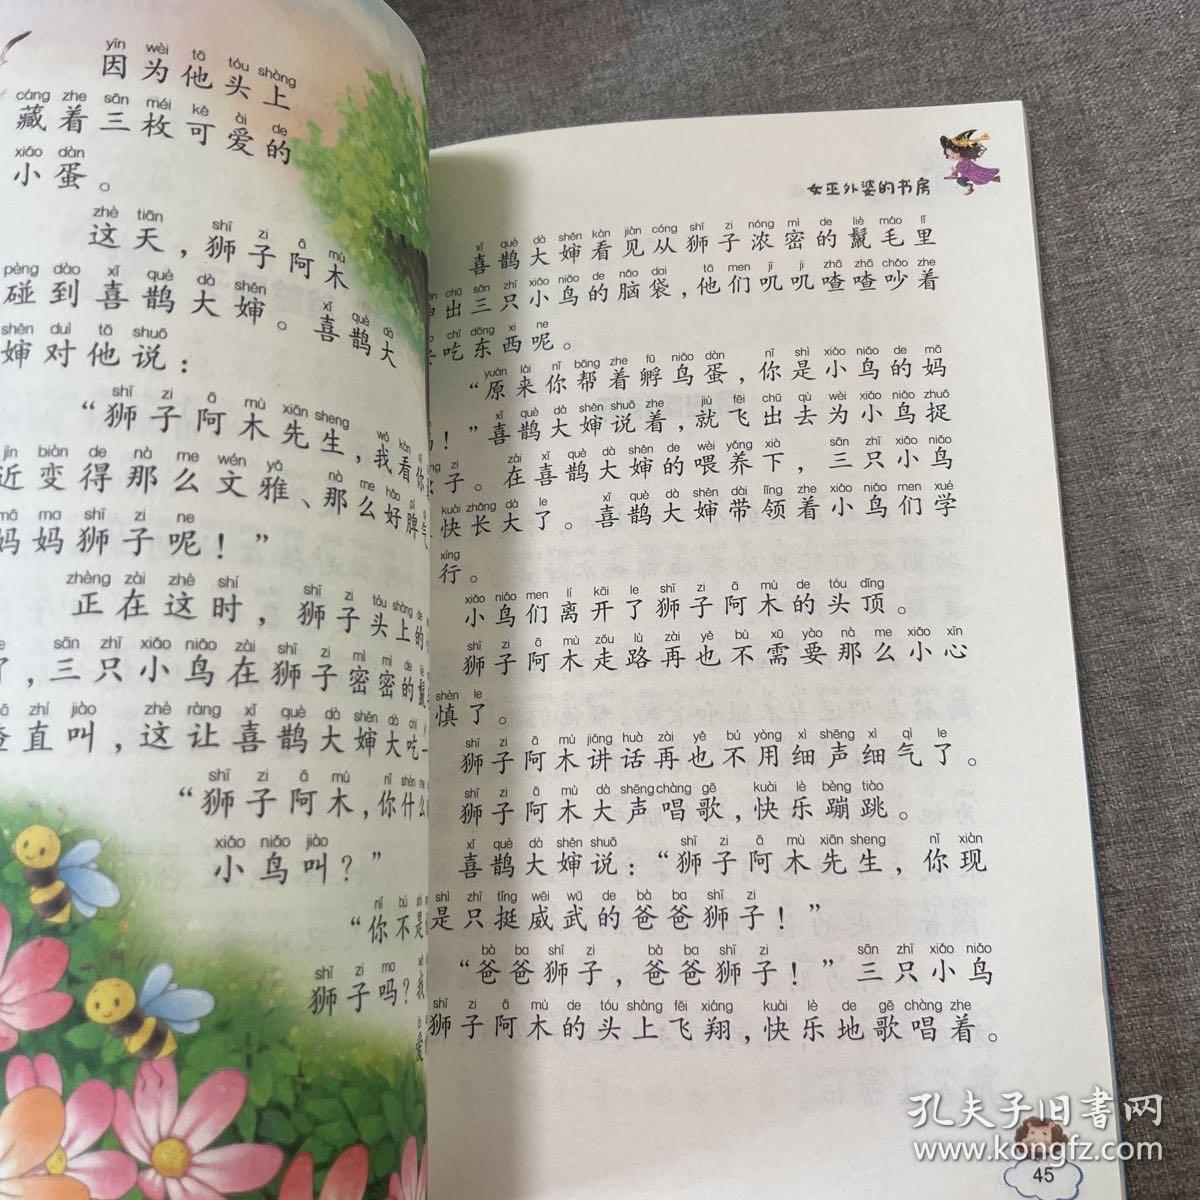 yīn wèi tā tóu shàng
因为他头上
cáng zhe sān méi kě ài de
藏着三枚可爱的
xiǎo dàn
小蛋。
zhè tiān shī zi ā mù
这天，狮子阿木
pèng dào xǐ què dà shěn xǐ què dà
碰到喜鹊大婶。喜鹊大
shěn duì tā shuō
婶对他说：
shī zi ā mù xiān sheng wǒ kàn
“狮子阿木先生，我看你
jìn biàn de nà me wén yǎ nà me hǎo pí
近变得那么文雅、那么好脾气
mā ma shī zi ne
妈妈狮子呢！”
zhèng zài zhè shí shī zi tóu shàng de
正在这时，狮子头上的
sān zhī xiǎo niǎo zài shī zi mì mì de
了，三只小鸟在狮子密密的鬣
zhí jiào zhè ràng xǐ què dà shěn dà chī
直叫，这让喜鹊大婶大吃一
shī zi ā mù nǐ shén me
“狮子阿木，你什么
xiǎo niǎo jiào
小鸟叫？”
nǐ bú shì
“你不是
shī zi ma
狮子吗？我
爱
女巫外婆的书房
xǐ què dà shěn kàn jiàn cóng shī zi nóng mì de liè máo lǐ
喜鹊大婶看见从狮子浓密的鬣毛里
chū sān zhī xiǎo niǎo de nǎo dai tā men jī jī zhā zhā chǎo zhe
出三只小鸟的脑袋，他们叽叽喳喳吵着
chī dōng xi ne
吃东西呢。
yuán lái nǐ bāng zhe fū niǎo dàn nǐ shì xiǎo niǎo de mā
“原来你帮着孵鸟蛋，你是小鸟的妈
xǐ què dà shěn shuō zhe jiù fēi chū qù wèi xiǎo niǎo zhuō
！”喜鹊大婶说着，就飞出去为小鸟捉
zi zài xǐ què dà shěn de wèi yǎng xià sān zhī xiǎo niǎo
子。在喜鹊大婶的喂养下，三只小鸟
kuài zhǎng dà le xǐ què dà shěn dài lǐng zhe xiǎo niǎo men xué
快长大了。喜鹊大婶带领着小鸟们学
xíng
行。
xiǎo niǎo men lí kāi le shī zi ā mù de tóu dǐng
小鸟们离开了狮子阿木的头顶。
shī zi ā mù zǒu lù zài yě bù xū yào nà me xiǎo xīn
狮子阿木走路再也不需要那么小心
shèn le
慎了。
shī zi ā mù jiǎng huà zài yě bú yòng xì shēng xì qì le
狮子阿木讲话再也不用细声细气了。
shī zi ā mù dà shēng chàng gē kuài lè bèng tiào
狮子阿木大声唱歌，快乐蹦跳。
xǐ què dà shěn shuō shī zi ā mù xiān sheng nǐ xiàn
喜鹊大婶说：“狮子阿木先生，你现
shì zhī tǐng wēi wǔ de bà ba shī zi
是只挺威武的爸爸狮子！”
bà ba shī zi bà ba shī zi sān zhī xiǎo niǎo
“爸爸狮子，爸爸狮子！”三只小鸟
shī zi ā mù de tóu shàng fēi xiáng kuài lè de gē chàng zhe
狮子阿木的头上飞翔，快乐地歌唱着。
45
孔夫子旧书网
www.kongfz.com